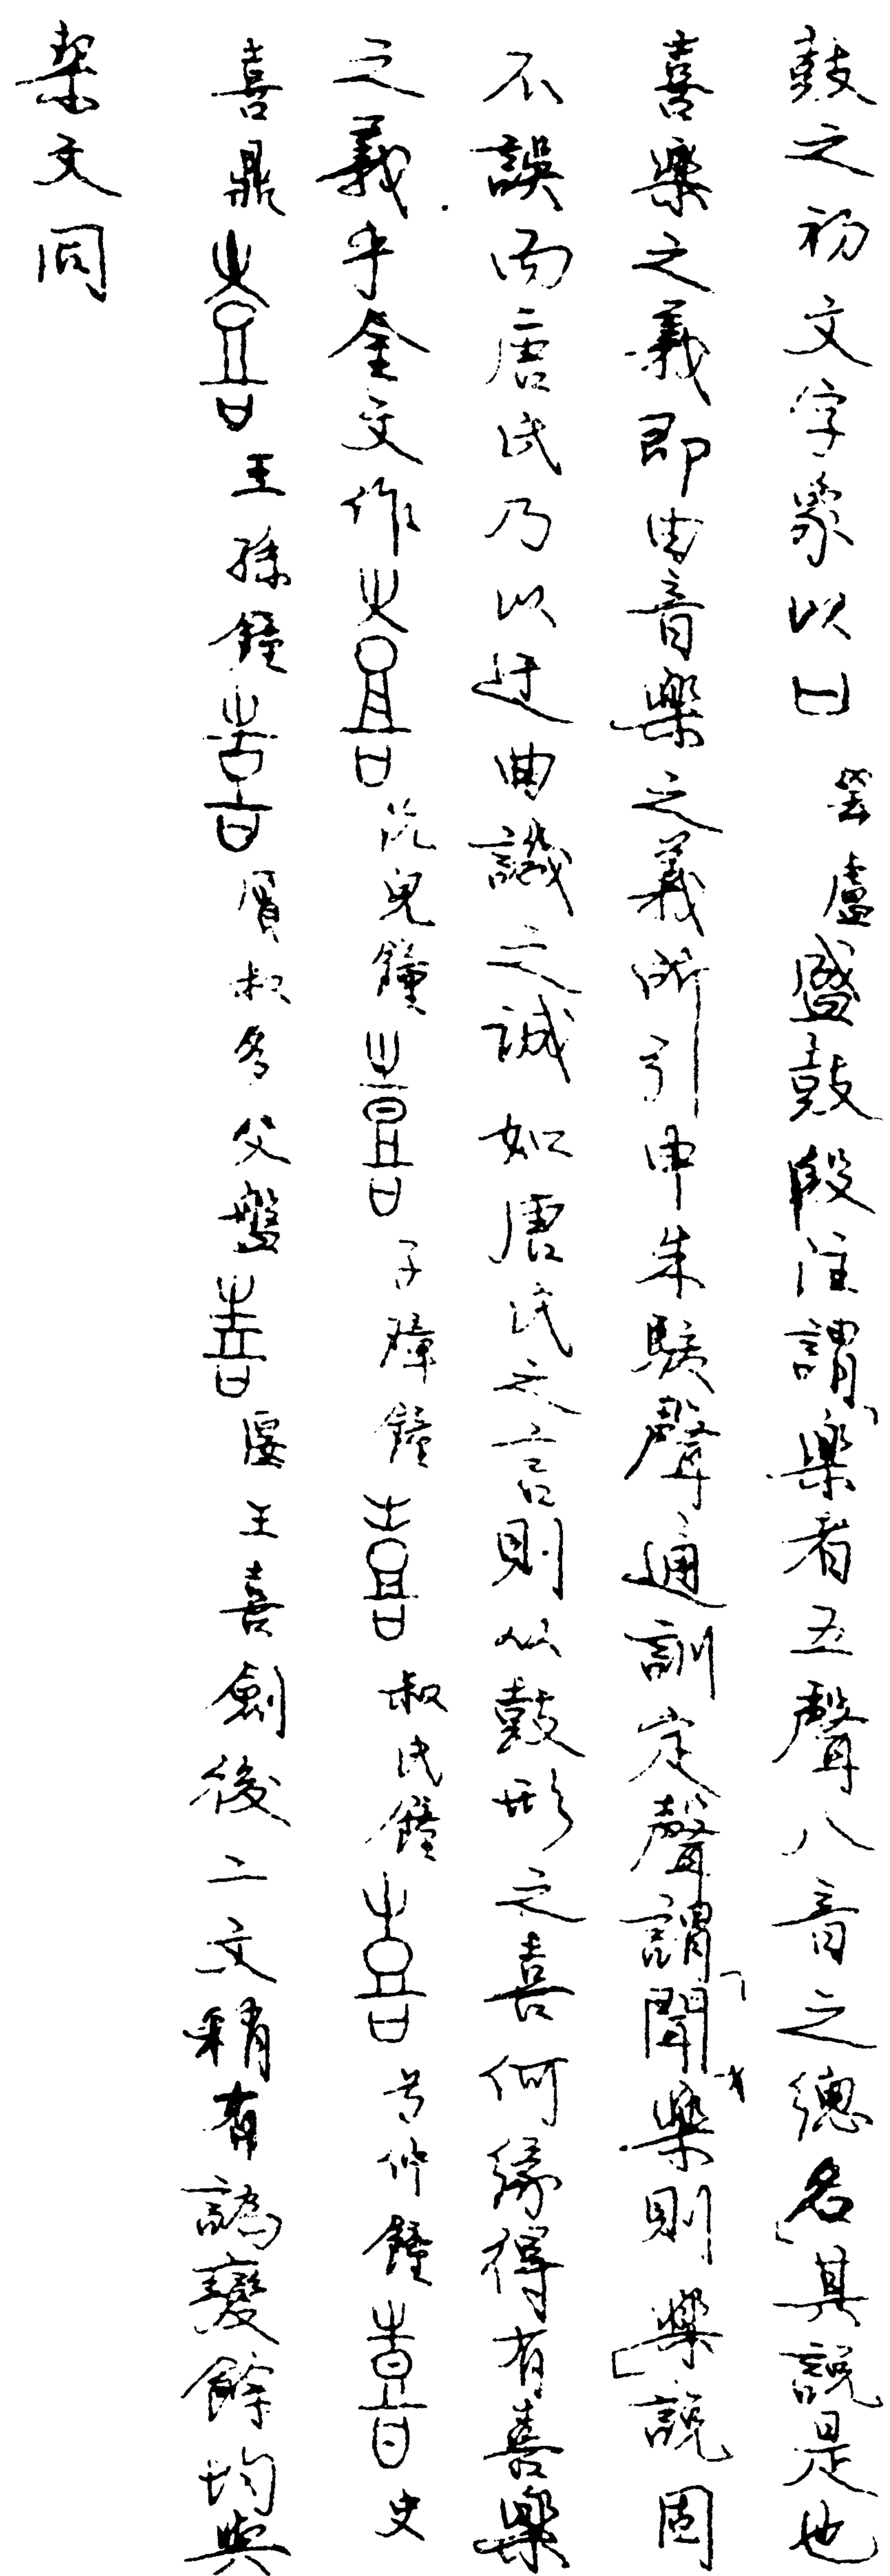 鼓之初文字象以凵㽃盧盛鼓段注謂「樂者五聲八音之總名」其說是也
喜樂之義即由音樂之義所引申朱駿聲通訓定聲謂「聞樂則樂」說固
不誤而唐氏乃以迂曲譏之誠如唐氏之言則从鼓形之喜何緣得有喜樂
之義乎金文作沇兒鐘子璋鐘叔氏鐘兮仲鐘史
喜鼎王孫鐘叔多父盤王喜劍後二文稍有譌變餘均與
栔文同